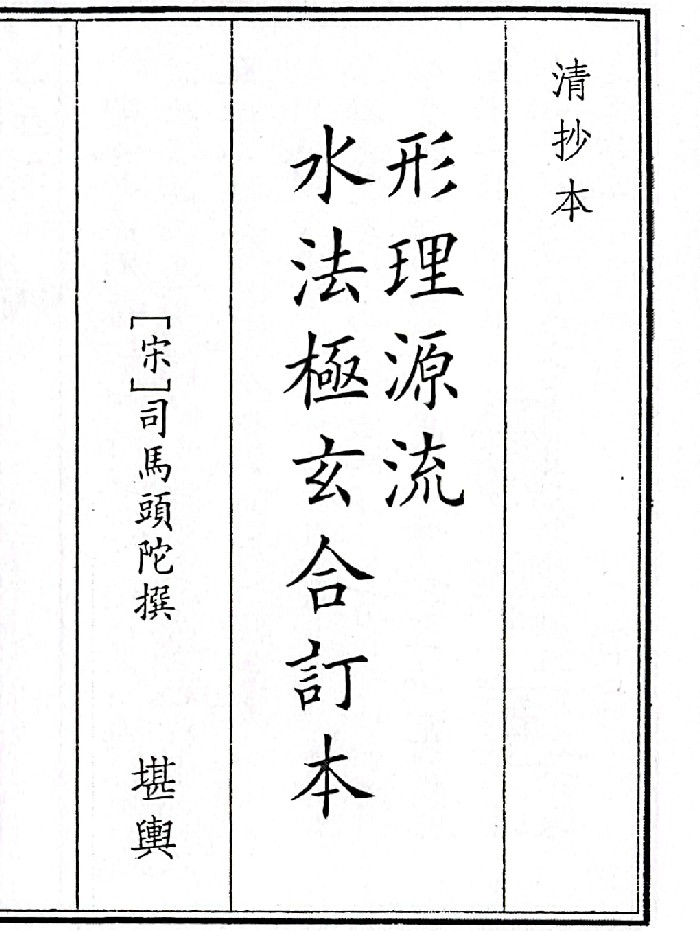 清抄本
形理源流
水法極玄合訂本
[宋]司馬頭陀撰
堪輿